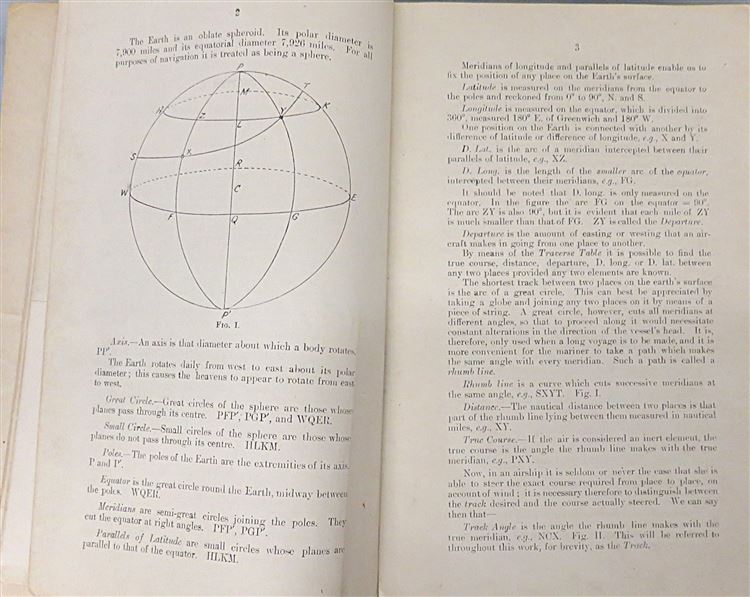 2
The Earth is an oblate spheroid. Its polar diameter is
7,900 miles and its equatorial diameter 7,926 miles. For all
purposes of navigation it is treated as being a sphere.
P
T
M
H
K
Z
Y
L
X
S
R
W
C
E
F
Q
G
P'
FIG. I.
Axis.—An axis is that diameter about which a body rotates,
PP'.
The Earth rotates daily from west to east about its polar
diameter; this causes the heavens to appear to rotate from east
to west.
Great Circle.—Great circles of the sphere are those whose
planes pass through its centre. PFP', PGP', and WQER.
Small Circle.—Small circles of the sphere are those whose
planes do not pass through its centre. HLKM.
Poles.—The poles of the Earth are the extremities of its axis.
P and P'.
Equator is the great circle round the Earth, midway between
the poles. WQER.
Meridians are semi-great circles joining the poles. They
cut the equator at right angles. PFP', PGP'.
Parallels of Latitude are small circles whose planes are
parallel to that of the equator. HLKM.
3
Meridians of longitude and parallels of latitude enable us to
fix the position of any place on the Earth's surface.
Latitude is measured on the meridians from the equator to
the poles and reckoned from 0° to 90°, N. and S.
Longitude is measured on the equator, which is divided into
360°, measured 180° E. of Greenwich and 180° W.
One position on the Earth is connected with another by its
difference of latitude or difference of longitude, e.g., X and Y.
D. Lat. is the arc of a meridian intercepted between their
parallels of latitude, e.g., XZ.
D. Long. is the length of the smaller arc of the equator,
intercepted between their meridians, e.g., FG.
It should be noted that D. long. is only measured on the
equator. In the figure the arc FG on the equator = 90°.
The arc ZY is also 90°, but it is evident that each mile of ZY
is much smaller than that of FG. ZY is called the Departure.
Departure is the amount of easting or westing that an air-
craft makes in going from one place to another.
By means of the Traverse Table it is possible to find the
true course, distance, departure, D. long. or D. lat. between
any two places provided any two elements are known.
The shortest track between two places on the earth's surface
is the arc of a great circle. This can best be appreciated by
taking a globe and joining any two places on it by means of a
piece of string. A great circle, however, cuts all meridians at
different angles, so that to proceed along it would necessitate
constant alterations in the direction of the vessel's head. It is,
therefore, only used when a long voyage is to be made, and it is
more convenient for the mariner to take a path which makes
the same angle with every meridian. Such a path is called a
rhumb line.
Rhumb line is a curve which cuts successive meridians at the
same angle, e.g., SXYT. Fig. I.
Distance.—The nautical distance between two places is that
part of the rhumb line lying between them measured in nautical
miles, e.g., XY.
True Course.—If the air is considered an inert element, the
true course is the angle the rhumb line makes with the true
meridian, e.g., PXY.
Now, in an airship it is seldom or never the case that she is
able to steer the exact course required from place to place, on
account of wind; it is necessary therefore to distinguish between
the track desired and the course actually steered. We can say
then that—
Track Angle is the angle the rhumb line makes with the
true meridian, e.g., NCX. Fig. II. This will be referred to
throughout this work, for brevity, as the Track.